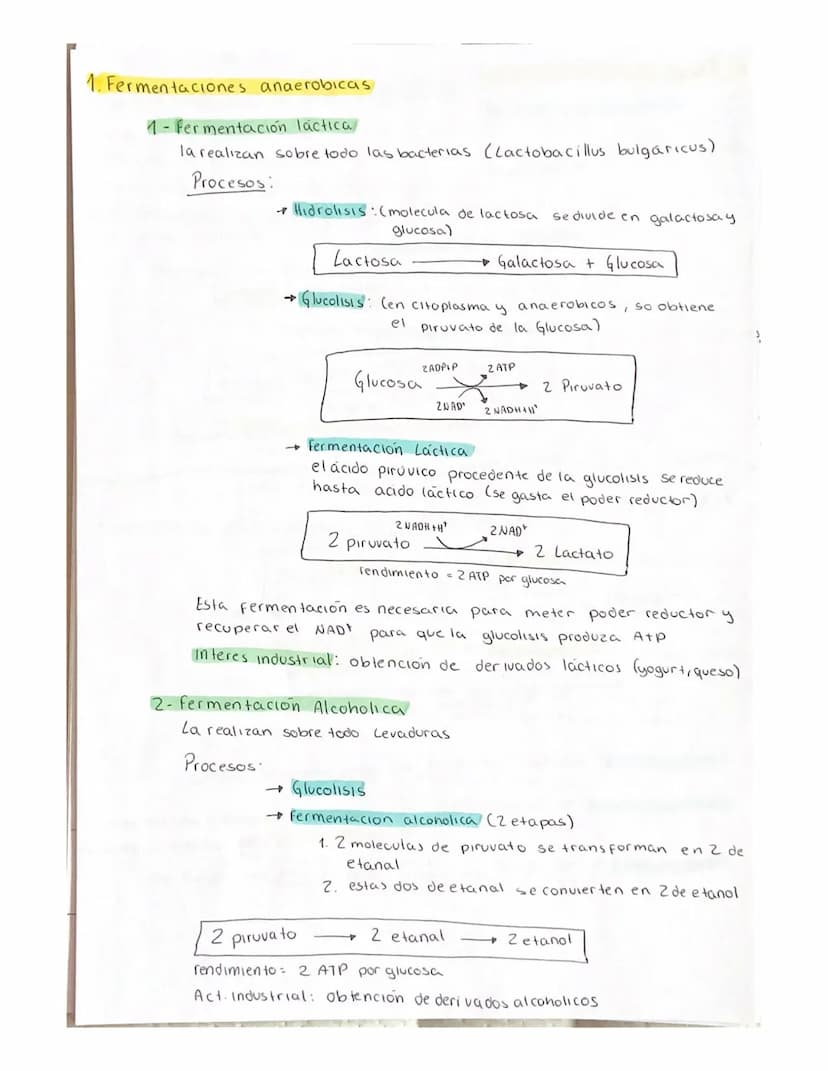 1. Fermentaciones anaerobicas
1 - Fermentación láctica
la realizan sobre todo las bacterias (Lactobacillus bulgáricus)
Procesos:
→ Hidrolisis: (molecula de lactosa se divide en galactosa y
glucosa)
Lactosa → Galactosa + Glucosa
→ Glucolisis: (en citoplasma y anaerobicos, se obtiene
el piruvato de la Glucosa)
2ADP+P 2 ATP
Glucosa → 2 Piruvato
2NAD+ 2 NADH+H+
→ Fermentación Láctica
el ácido pirúvico procedente de la glucolisis se reduce
hasta acido láctico (se gasta el poder reductor)
2 NADH+H+ 2 NAD+
2 piruvato → 2 Lactato
rendimiento = 2 ATP por glucosa
Esta fermentación es necesaria para meter poder reductor y
recuperar el NAD+ para que la glucolisis produza Atp
Interes industrial: obtención de derivados lácticos (yogurt, queso)
2- Fermentación Alcoholica
La realizan sobre todo Levaduras
Procesos:
→ Glucolisis
→ Fermentacion alcoholica (2 etapas)
1. 2 moleculas de piruvato se transforman en 2 de
etanal
2. estas dos de etanal se convierten en 2 de etanol
2 piruvato → 2 etanal → 2 etanol
rendimiento = 2 ATP por glucosa
Act. Industrial: obtención de derivados alcoholicos